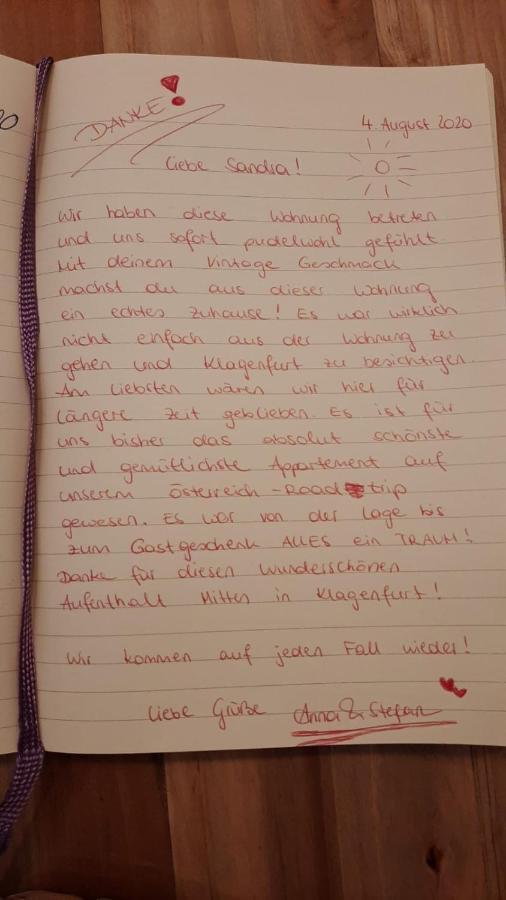 DANKE!
4. August 2020
Liebe Sandra!
Wir haben diese Wohnung betreten
und uns sofort pudelwohl gefühlt.
Mit deinem Vintage Geschmack
machst du aus dieser Wohnung
ein echtes Zuhause! Es war wirklich
nicht einfach aus der Wohnung zu
gehen und Klagenfurt zu besichtigen.
Am liebsten wären wir hier für
längere Zeit geblieben. Es ist für
uns bisher das absolut schönste
und gemütlichste Appartement auf
unserem Österreich-Roadtrip
gewesen. Es war von der Lage bis
zum Gastgeschenk ALLES ein TRAUM!
Danke für diesen wunderschönen
Aufenthalt Mitten in Klagenfurt!
Wir kommen auf jeden Fall wieder!
Liebe Grüße Anna & Stefan